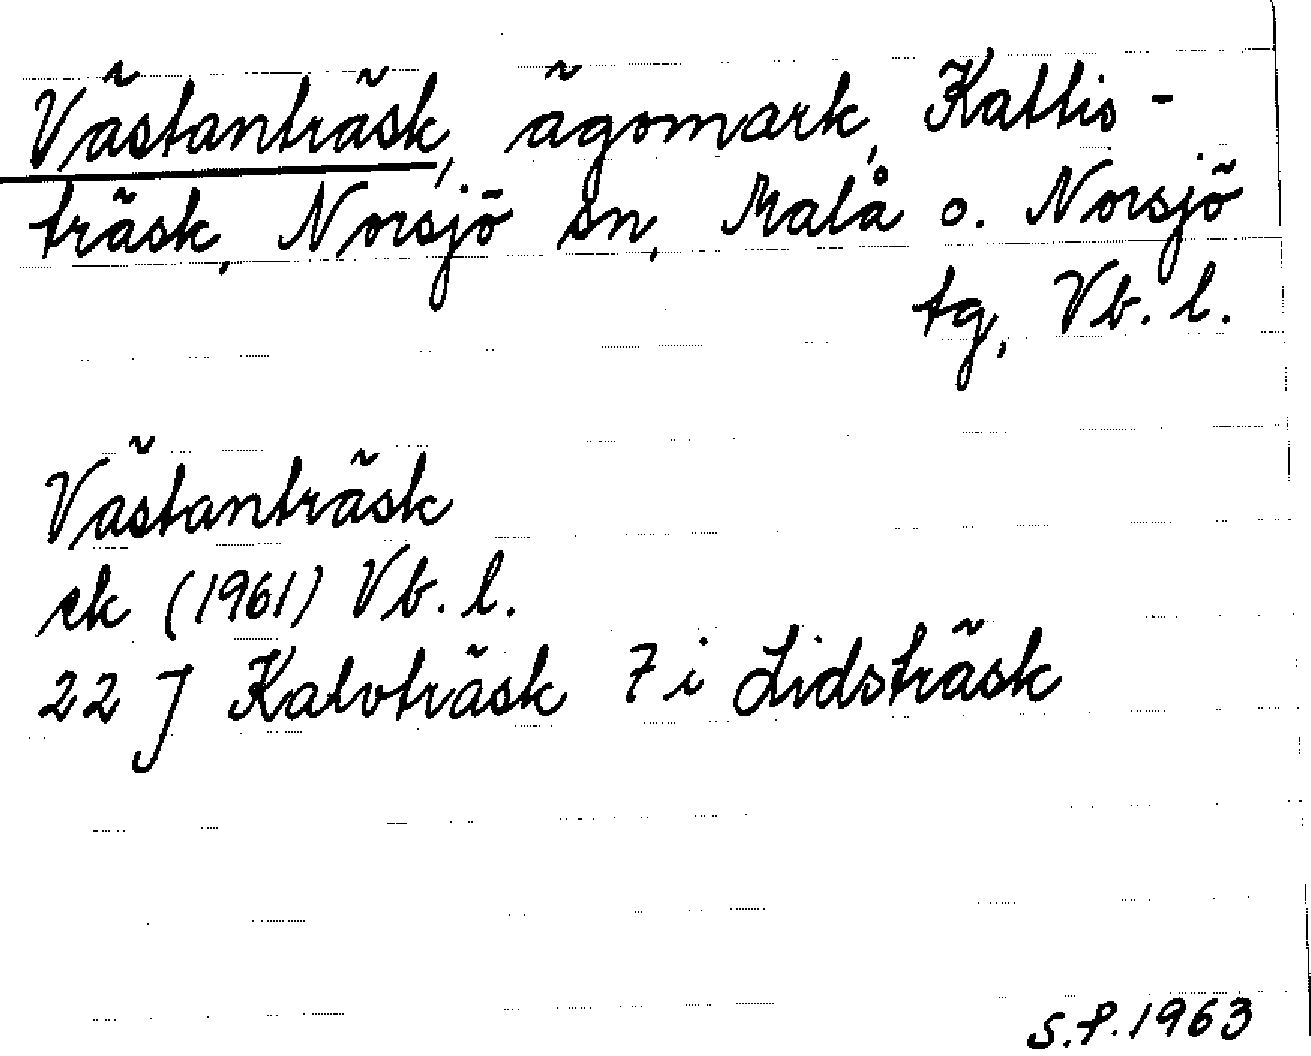 Västanträsk, ägomark, Kattis-
träsk, Norsjö sn, Malå o. Norsjö
tg, Vb. l.
Västanträsk
ek (1961) Vb. l.
22 J Kalvträsk 7 i Lidsträsk
S.P. 1963